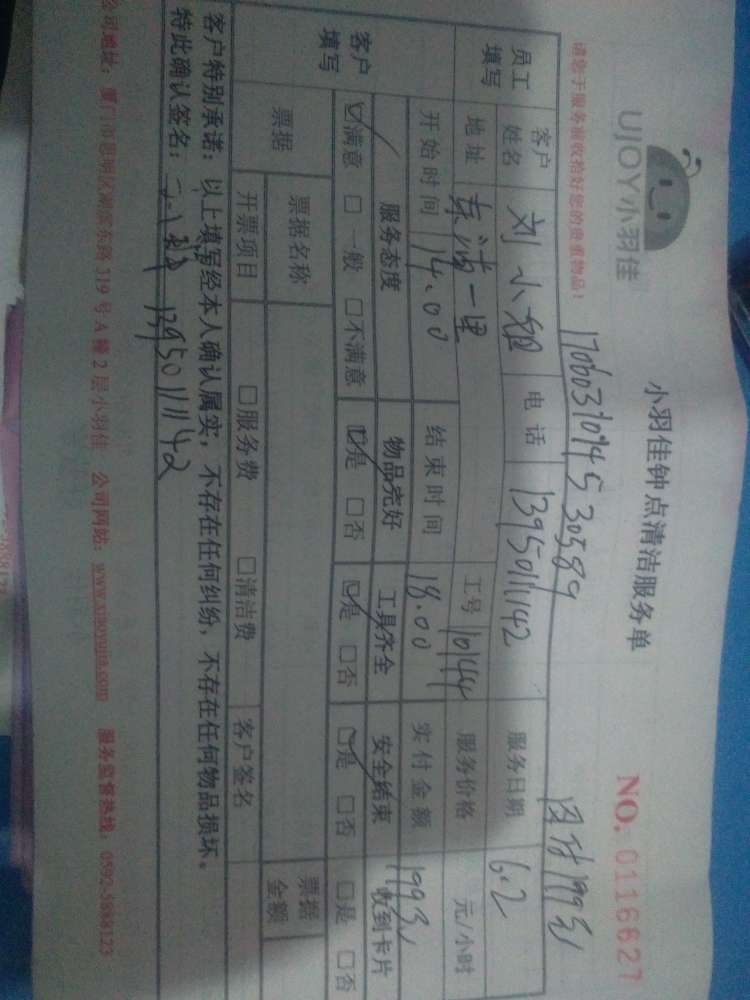 UJOY小羽佳
小羽佳钟点清洁服务单
NO. 0116627
请您于服务前收拾好您的贵重物品！
1706031094530589
199元
员工填写
客户姓名 刘小姐 电话 13950111142 服务日期 6.2
地址 东浦一里 工号 10144 服务价格 元/小时
开始时间 14.00 结束时间 18.00 实付金额 199元
客户填写
服务态度 物品完好 工具齐全 安全结束 收到卡片
☑满意 □一般 □不满意 ☑是 □否 ☑是 □否 ☑是 □否 □是 □否
票据
票据名称 票据金额
开票项目 □服务费 □清洁费 客户签名
客户特别承诺：以上填写经本人确认属实，不存在任何纠纷，不存在任何物品损坏。
特此确认签名： 13950111142
公司地址：厦门市思明区湖滨东路319号A幢2层小羽佳 公司网站：www.xiaoyujia.com 服务监督热线：0592-5888123